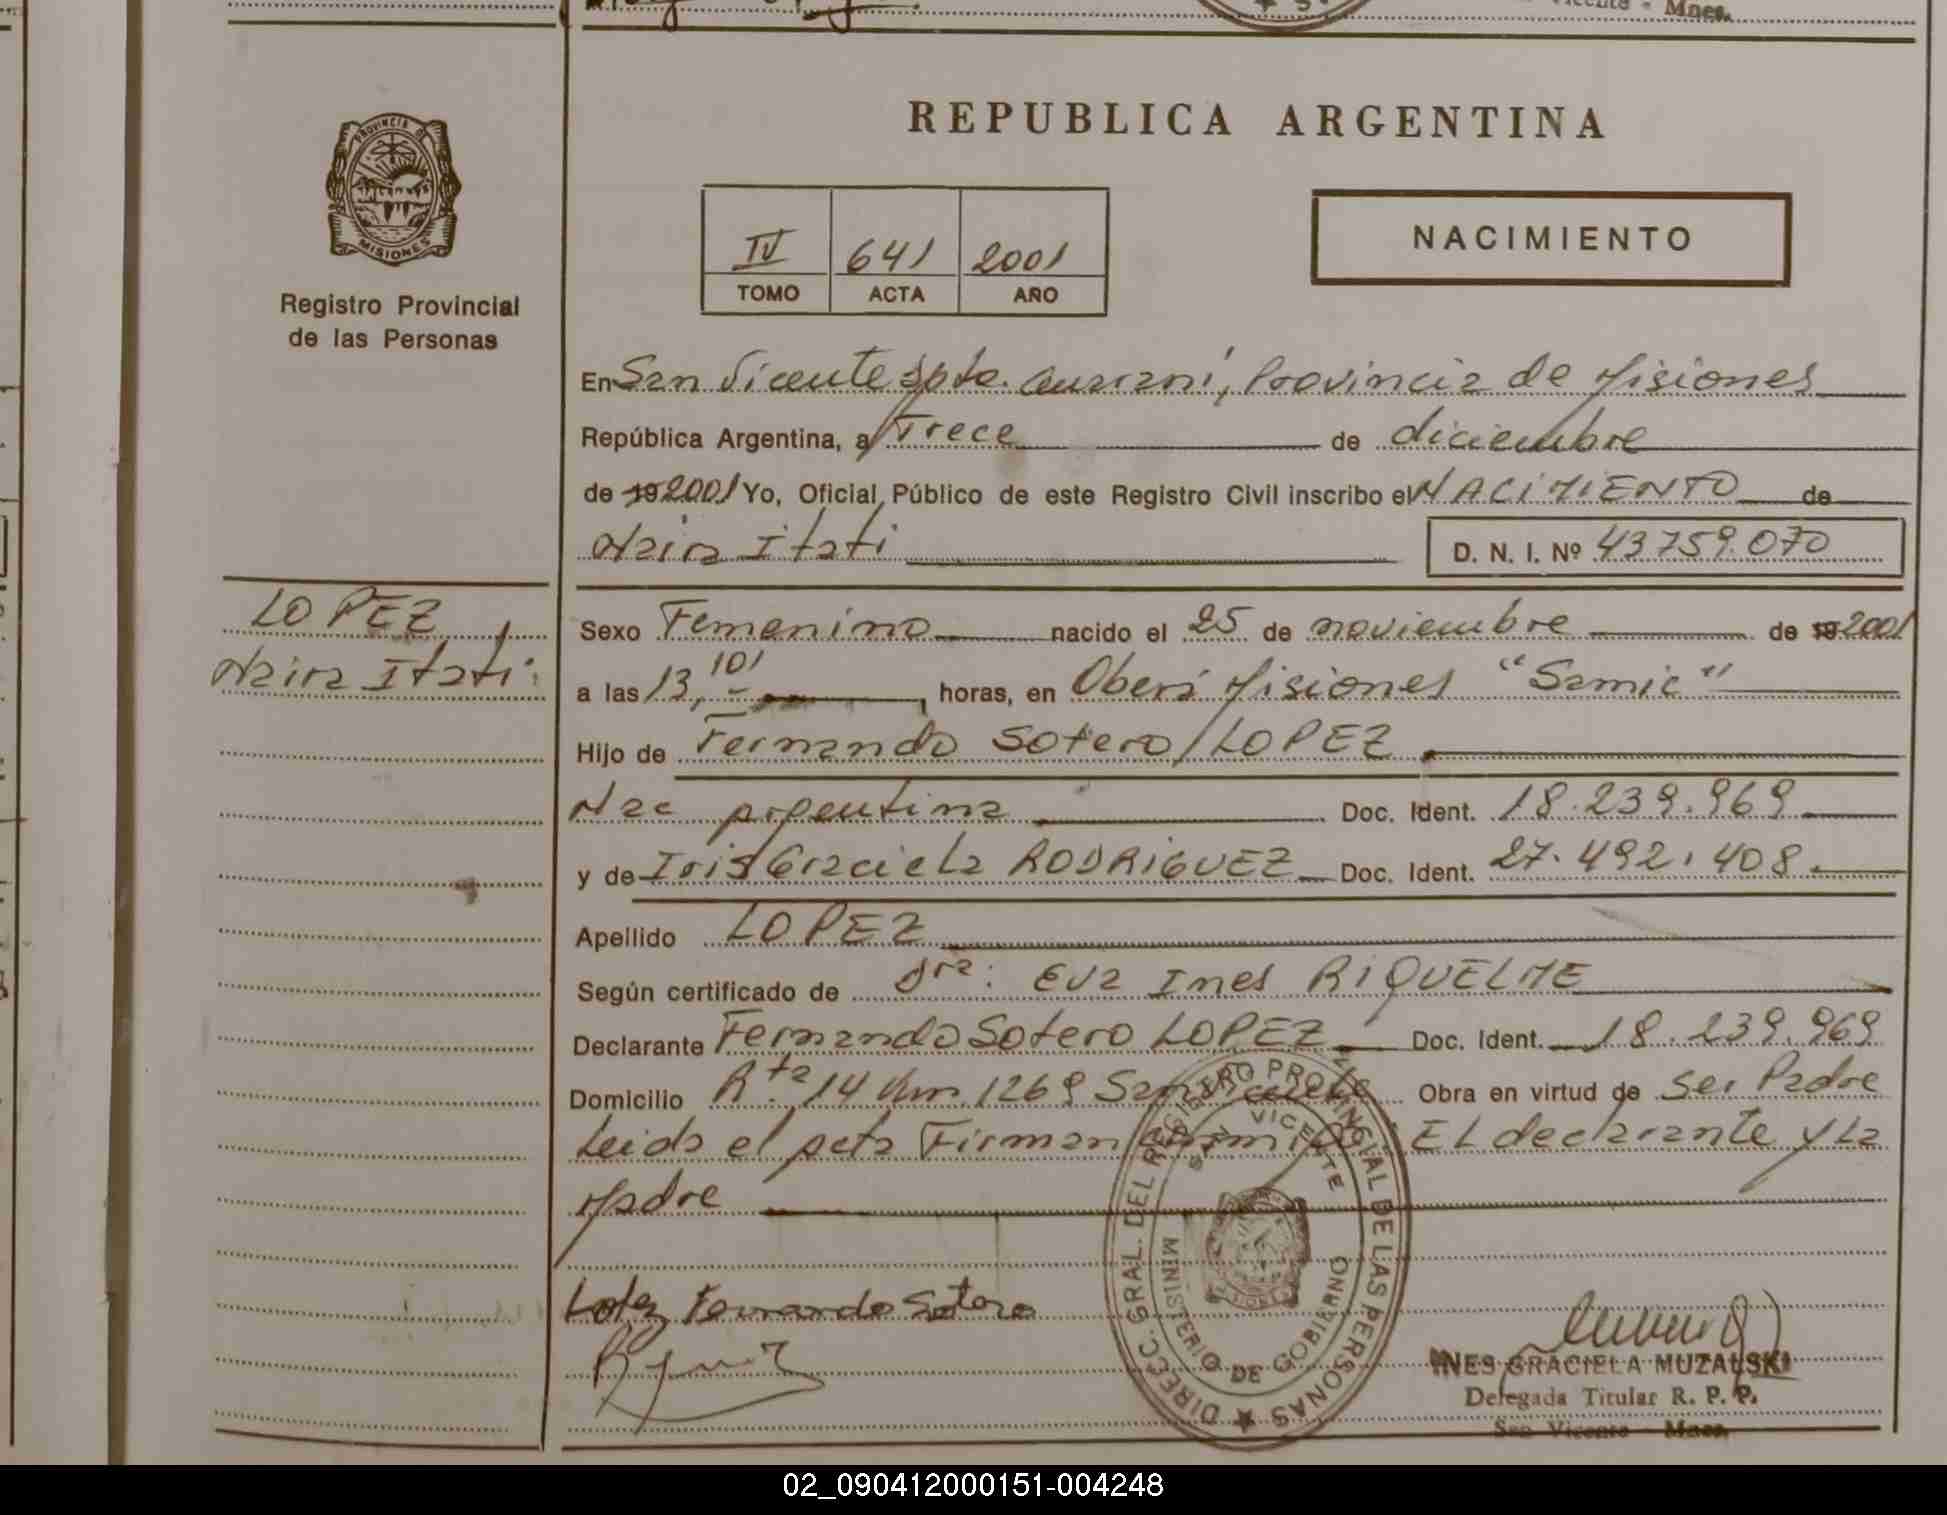 Vicente - Mnes.
REPUBLICA ARGENTINA
PROVINCIA DE
MISIONES
Registro Provincial
de las Personas
IV 641 2001
TOMO ACTA AÑO
NACIMIENTO
En San Vicente Dpto. Guaraní, Provincia de Misiones
República Argentina, a Trece de diciembre
de 19 2001 Yo, Oficial Público de este Registro Civil inscribo el NACIMIENTO de
Naira Itati
D. N. I. Nº 43759.070
LOPEZ
Naira Itati.
Sexo Femenino nacido el 25 de noviembre de 19 2001
a las 13,10' horas, en Oberá Misiones "Samic"
Hijo de Fernando Sotero LOPEZ
Nac argentina Doc. Ident. 18.239.969
y de Iris Graciela RODRIGUEZ Doc. Ident. 27.492.408
Apellido LOPEZ
Según certificado de Dra: Eva Ines RIQUELME
Declarante Fernando Sotero LOPEZ Doc. Ident. 18.239.969
Domicilio Rta. 14 Km 1269 San Vicente Obra en virtud de ser Padre
Leida el acta Firman conmigo EL declarante y La
Madre
DIREC. GRAL. DEL REGISTRO PROVINCIAL DE LAS PERSONAS
SAN VICENTE
MINISTERIO DE GOBIERNO
Lopez Fernando Sotero
INES GRACIELA MUZALSKI
Delegada Titular R. P. P.
San Vicente - Mnes.
02_090412000151-004248